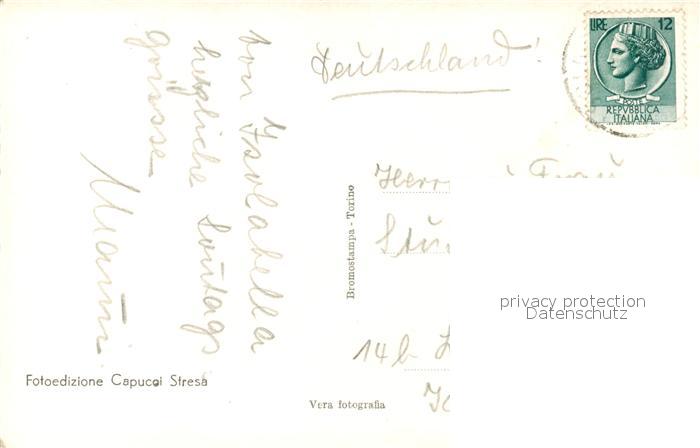 von Isolabella
herzliche Sontags
grüsse
Deutschland!
LIRE 12
POSTE
REPVBBLICA
ITALIANA
Herr
Frau
14b
Bromostampa - Torino
privacy protection
Datenschutz
Fotoedizione Capucci Stresa
Vera fotografia